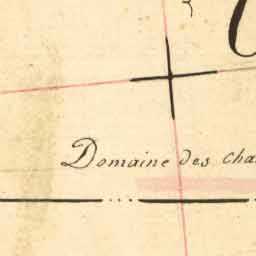 Domaine des cha